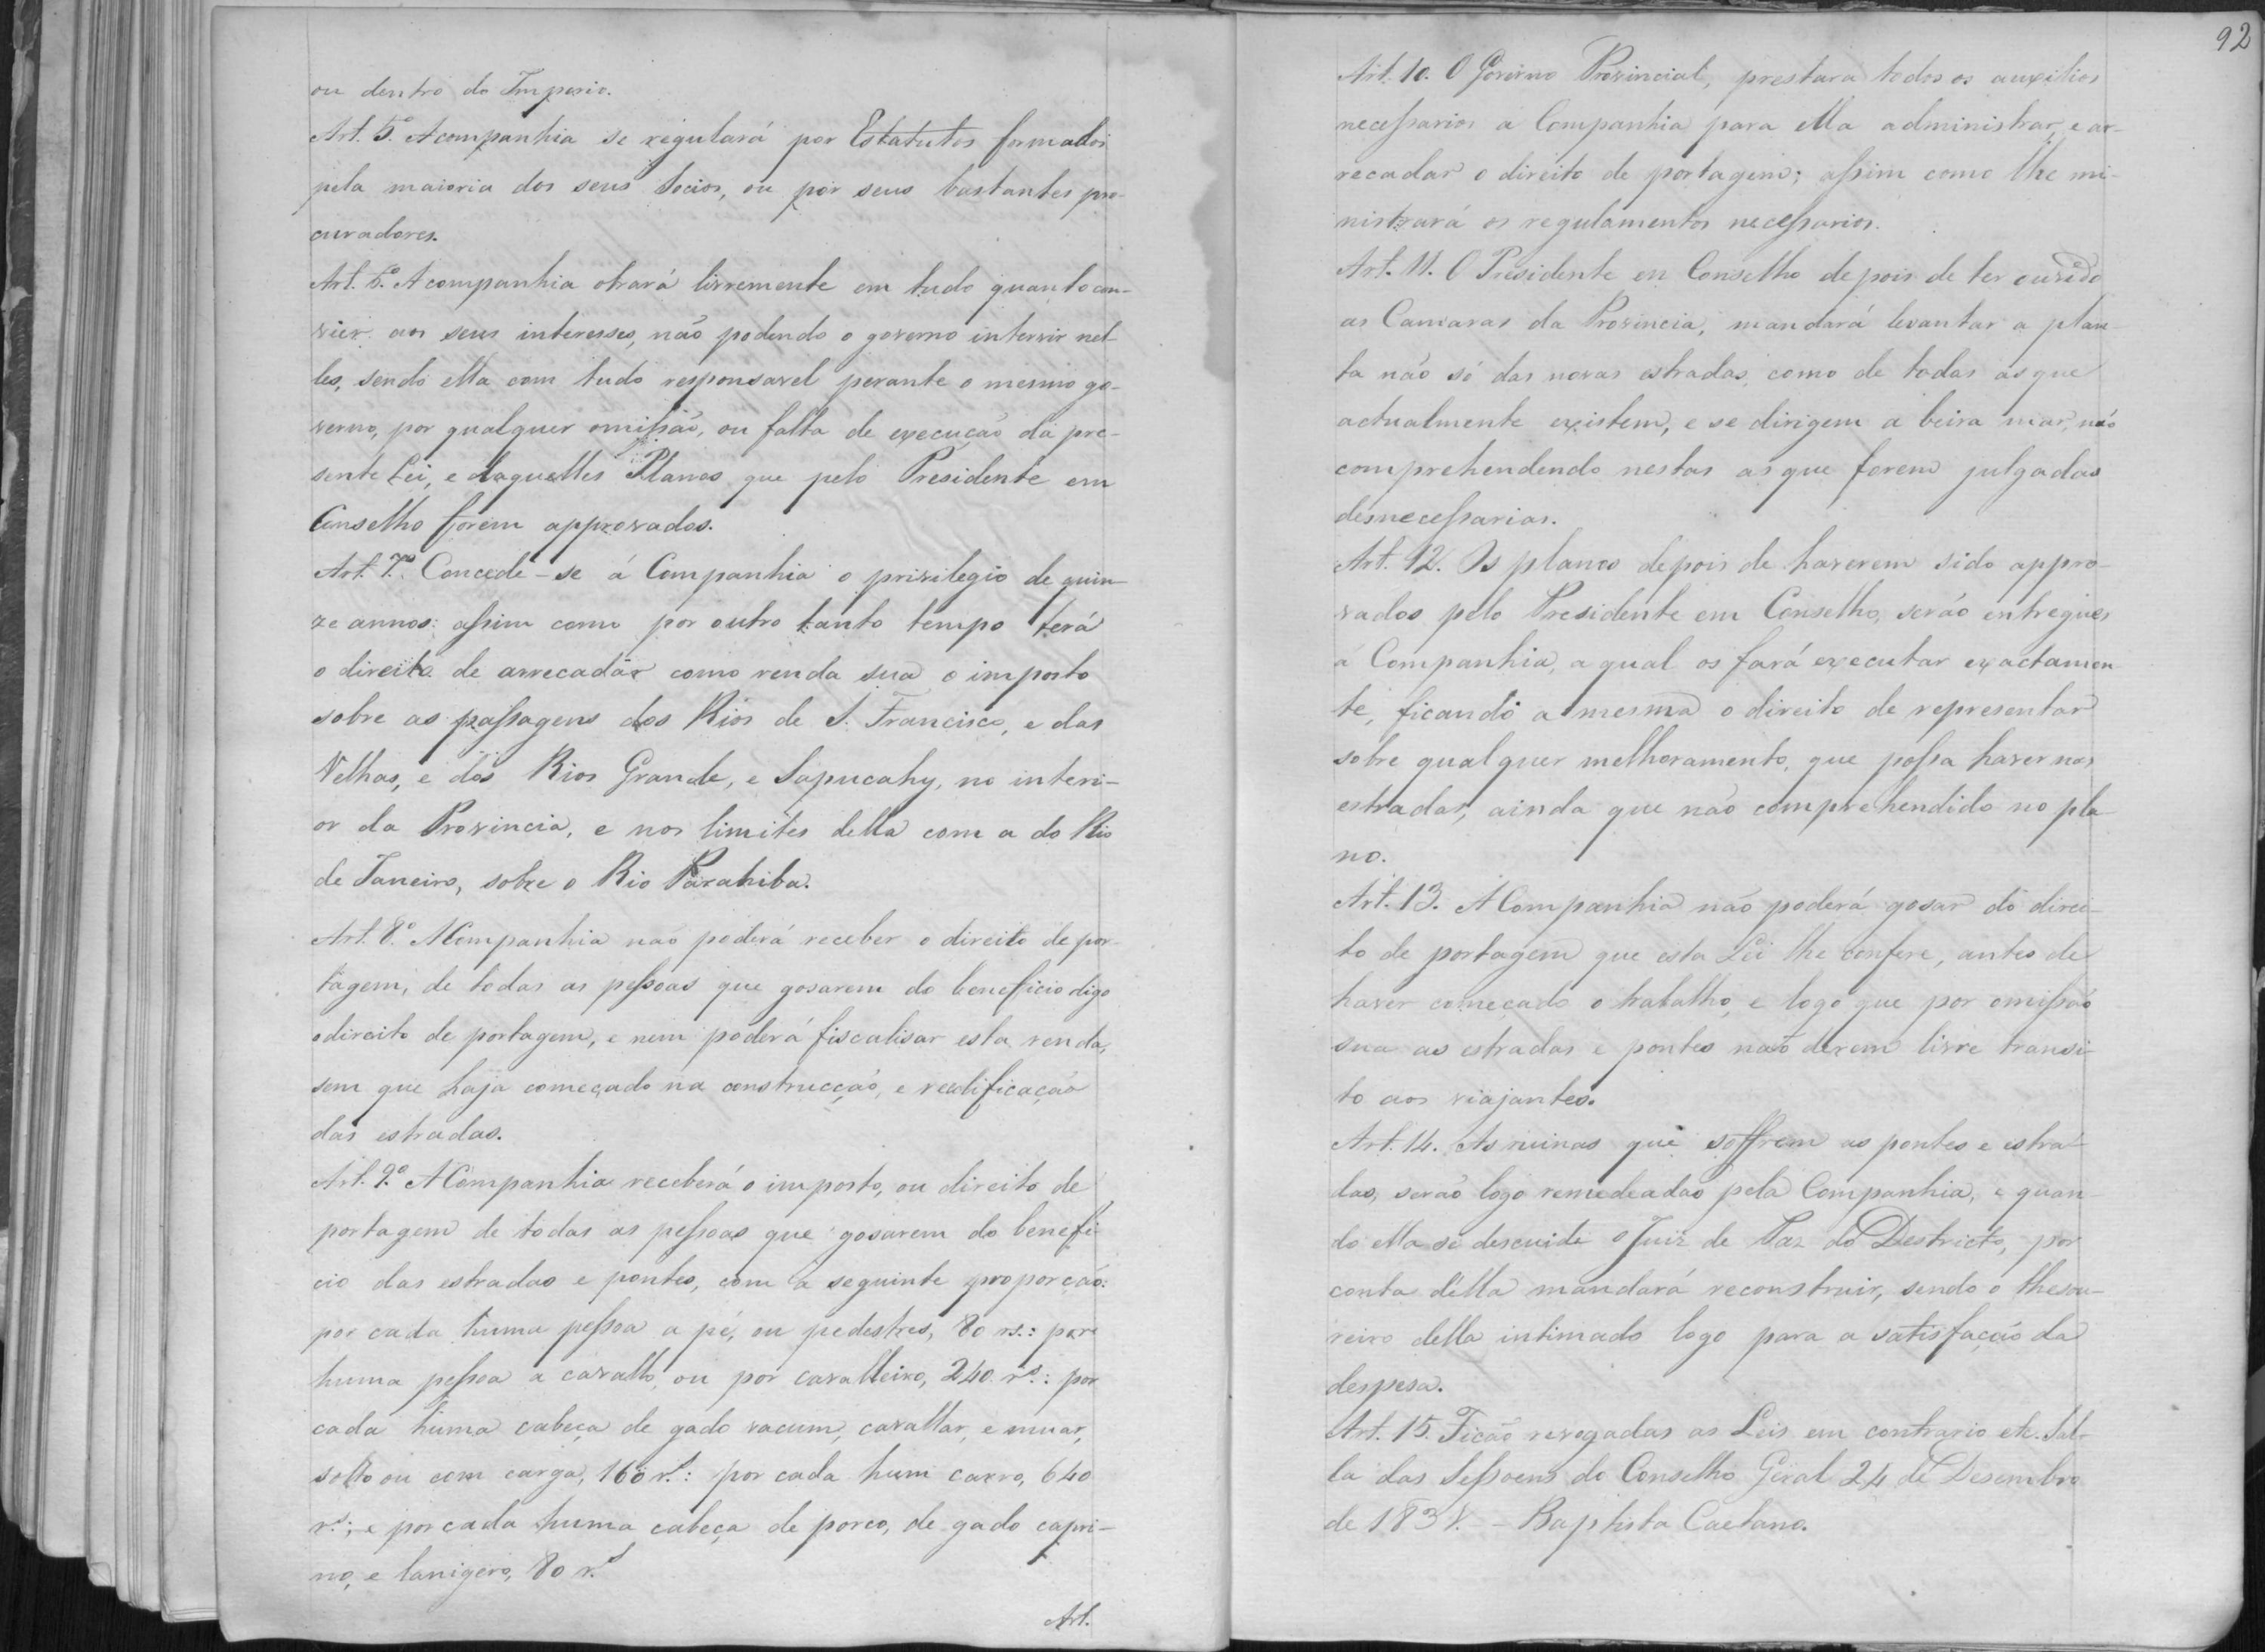 ou dentro do Imperio.
Art. 5.º A companhia se regulará por Estatutos formados
pela maioria dos seus Socios, ou por seus bastantes pro-
curadores.
Art. 5.º A companhia obrará livremente em tudo quanto con-
vier aos seus interesses, não podendo o governo intervir nel-
les, sendo ella com tudo responsavel perante o mesmo go-
verno, por qualquer omissão, ou falta de execução da pre-
sente Lei, e daquelles Planos que pelo Presidente em
Conselho forem approvados.
Art. 7.º Concede-se á Companhia o privilegio de quin-
ze annos: assim como por outro tanto tempo terá
o direito de arrecadar como renda sua o imposto
sobre as passagens dos Rios de S. Francisco, e das
Velhas, e dos Rios Grande, e Sapucahy, no interi-
or da Provincia, e nos limites della com a do Rio
de Janeiro, sobre o Rio Parahiba.
Art. 8.º A Companhia não poderá receber o direito de por-
tagem, de todas as pessoas que gosarem do beneficio digo
o direito de portagem, e nem poderá fiscalisar esta renda,
sem que haja começado na construcção, e reedificação
das estradas.
Art. 9.º A Companhia receberá o imposto, ou direito de
portagem de todas as pessoas que gosarem do benefi-
cio das estradas e pontes, com a seguinte proporcão:
por cada huma pessoa a pé, ou pedestres, 80 rs.: por
huma pessoa a cavallo, ou por cavalleiro, 240 rs.: por
cada huma cabeça de gado vacum, cavallar, e muar,
solto ou com carga, 160 rs.: por cada hum carro, 640
rs.; e por cada huma cabeça de porco, de gado capri-
no, e lanigero, 80 rs.
Art.
92
Art. 10. O Governo Provincial, prestara todos os auxilios
necessarios a Companhia para ella administrar, e ar-
recadar o direito de portagem; assim como lhe mi-
nistrará os regulamentos necessarios.
Art. 11. O Presidente em Conselho depois de ter ouvido
as Camaras da Provincia, mandará levantar a plan-
ta não só das novas estradas, como de todas as que
actualmente existem, e se dirigem a beira mar, não
comprehendendo nestas as que forem julgadas
desnecessarias.
Art. 12. Os planos depois de haverem sido appro-
vados pelo Presidente em Conselho, serão entregues
á Companhia, a qual os fará executar exactamen-
te, ficando a mesma o direito de representar
sobre qualquer melhoramento, que possa haver nas
estradas, ainda que não comprehendido no pla-
no.
Art. 13. A Companhia não poderá gosar do direi-
to de portagem que esta Lei lhe confere, antes de
haver começado o trabalho, e logo que por omissão
sua as estradas e pontes não derem livre transi-
to aos viajantes.
Art. 14. As ruinas que soffrem as pontes e estra-
das, serão logo remedeadas pela Companhia, e quan-
do ella se descuide o Juiz de Paz do Destricto, por
conta della mandará reconstruir, sendo o thesou-
reiro della intimado logo para a satisfação da
despesa.
Art. 15. Ficão revogadas as Leis em contrario etc. Sal-
la das Sessoens do Conselho Geral 24 de Desembro
de 1831. - Baptista Caetano.